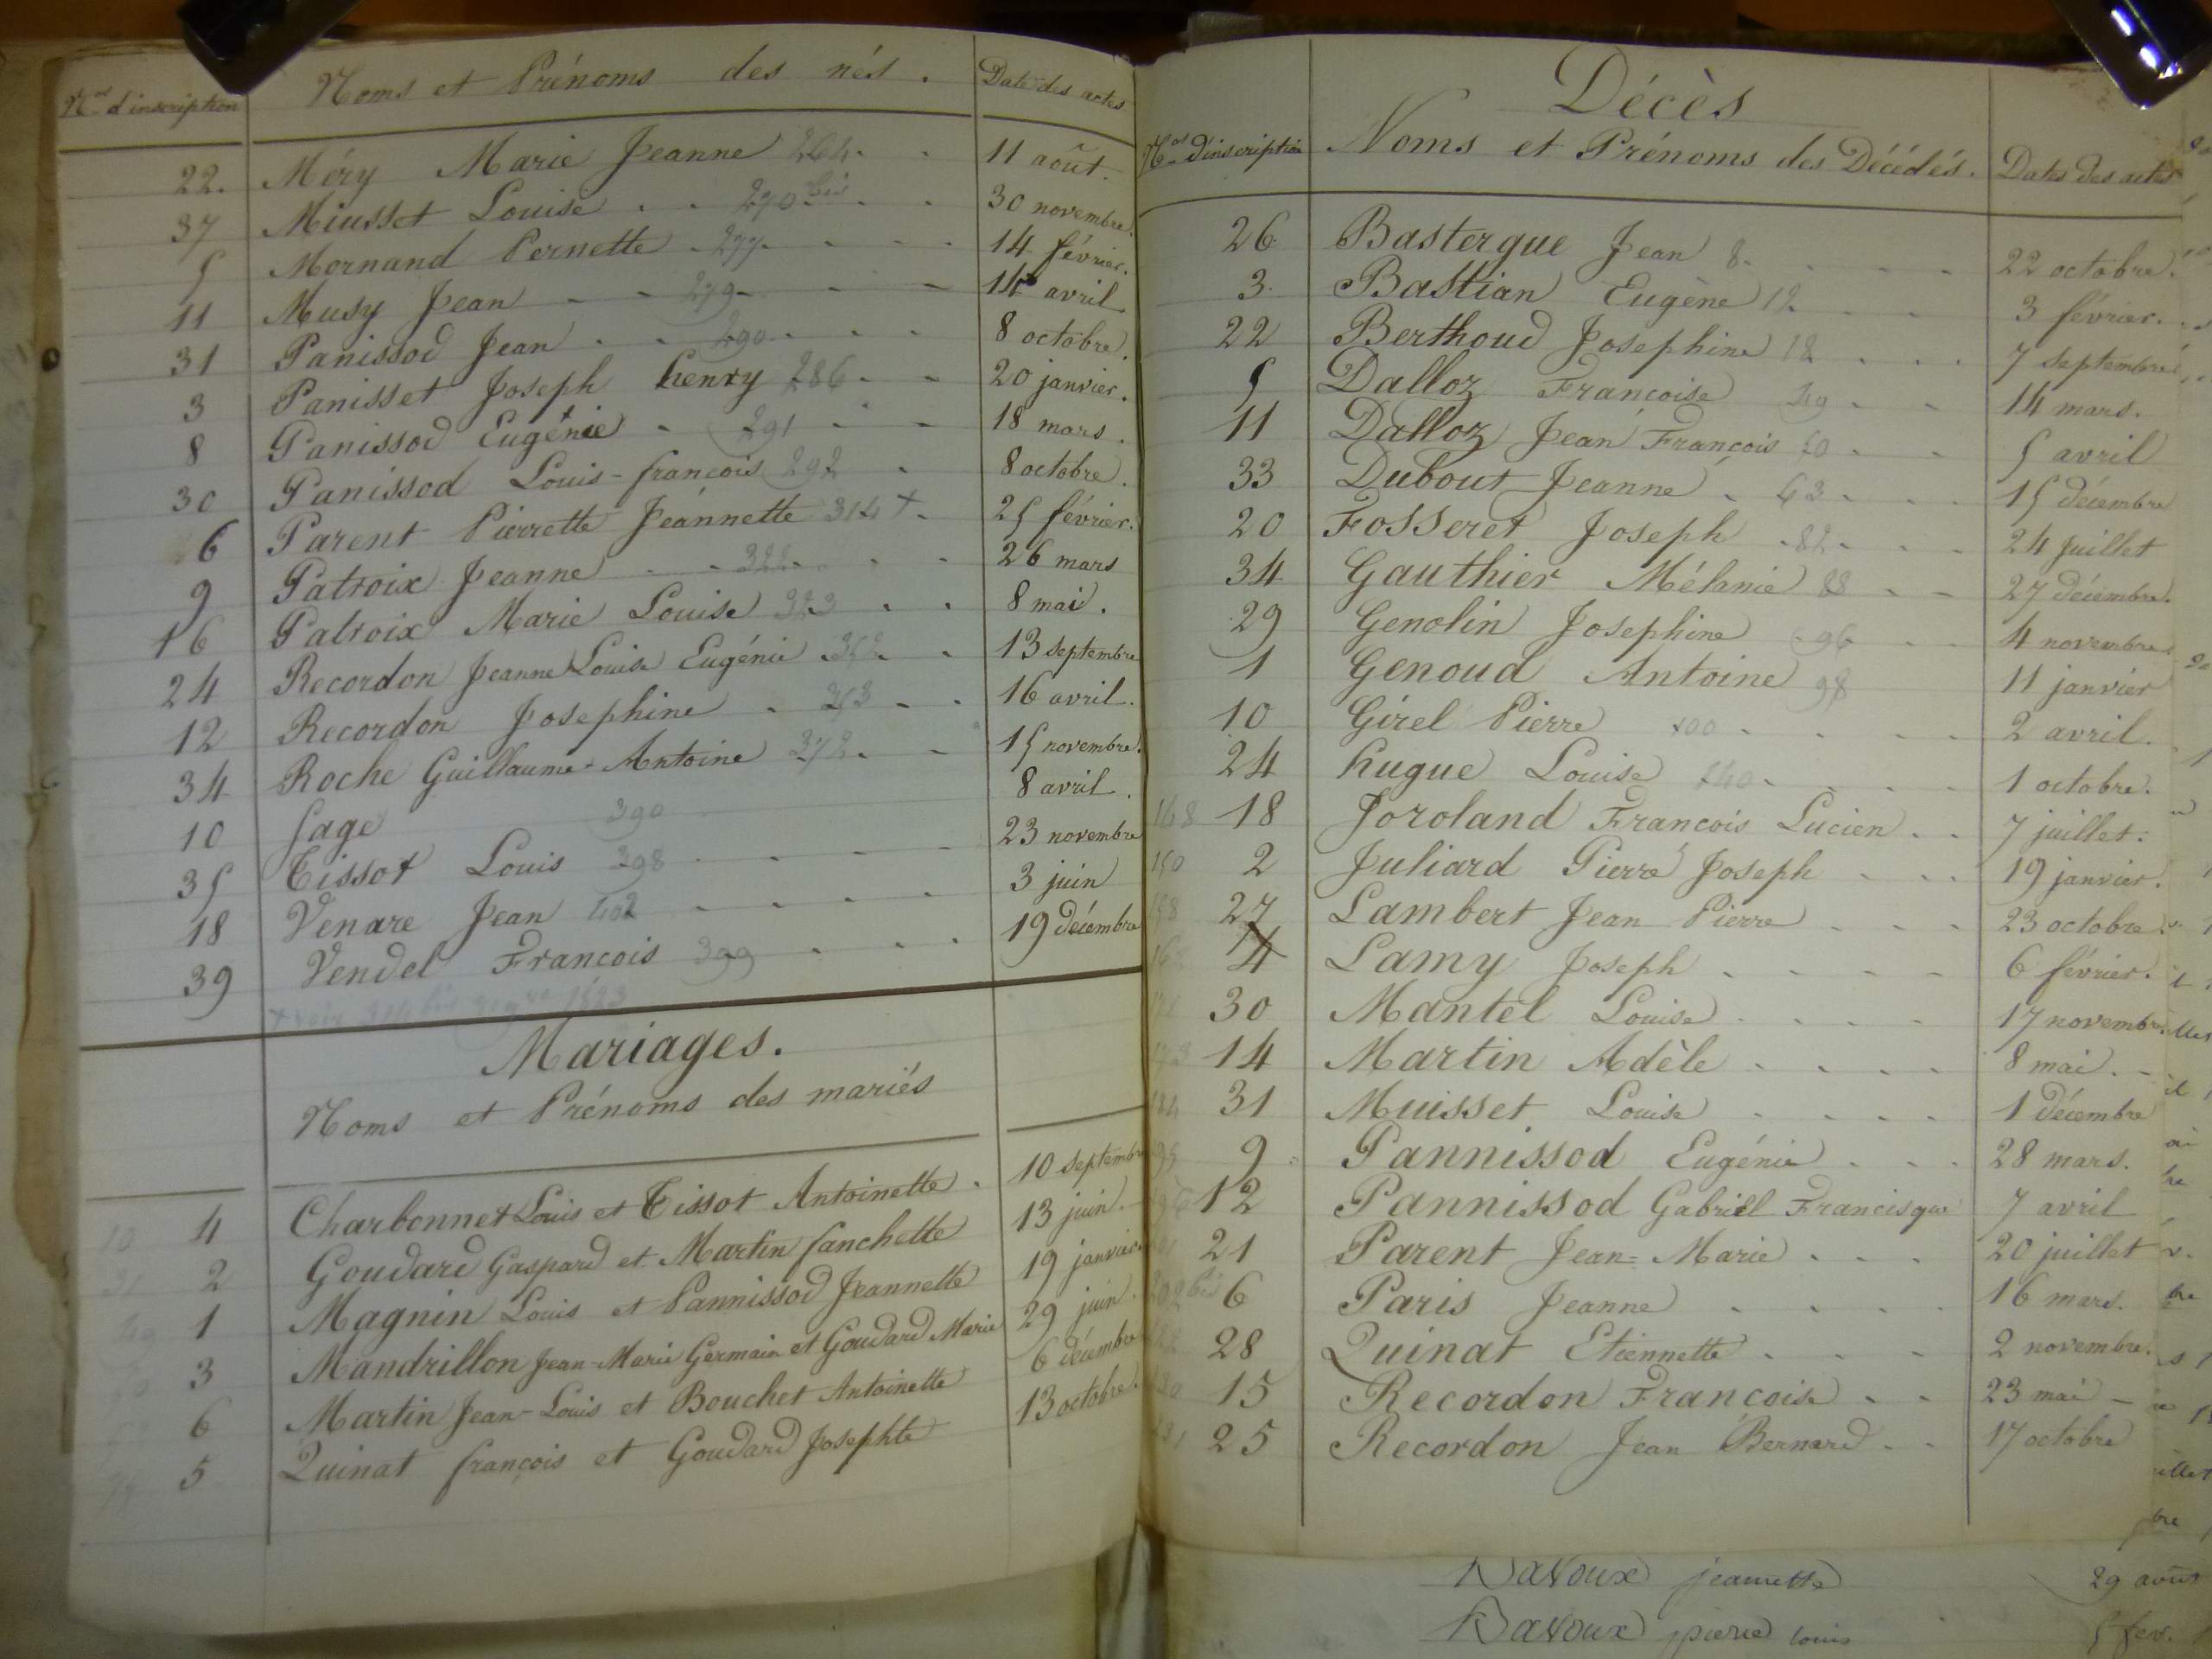 Nos d'inscription Noms et Prénoms des nés. Date des actes
22. Méry Marie Jeanne 264. 11 août.
37 Miusset Louise 270 bis 30 novembre.
5 Mornand Pernette 277 14 février.
11 Musy Jean 279 14 avril
31 Panissod Jean 290 8 octobre.
3 Panisset Joseph henry 286 20 janvier.
8 Panissod Eugénie 291 18 mars.
30 Panissod Louis-françois 292 8 octobre.
6 Parent Pierrette Jeannette 314 + 25 février.
9 Patroix Jeanne 322 26 mars
16 Patroix Marie Louise 323 8 mai.
24 Recordon Jeanne Louise Eugénie 352 13 septembre
12 Recordon Josephine 353 16 avril.
34 Roche Guillaume-Antoine 372 15 novembre.
10 Sage 390 8 avril.
35 Tissot Louis 398 23 novembre
18 Venare Jean 402 3 juin
39 Vendel François 399 19 décembre
Mariages.
Noms et Prénoms des mariés
4 Charbonnet Louis et Tissot Antoinette. 10 septembre
2 Goudard Gaspard et Martin fanchette 13 juin.
1 Magnin Louis et Pannissod Jeannette 19 janvier.
3 Mandrillon Jean-Marie Germain et Goudard Marie 29 juin.
6 Martin Jean-Louis et Bouchet Antoinette 6 décembre
5 Quinat françois et Goudard Josephte 13 octobre.
Décès
Nos d'inscription Noms et Prénoms des Décédés. Dates des actes
26 Bastergue Jean 8. 22 octobre.
3. Bastian Eugène 12 3 février.
22 Berthoud Josephine 18 7 septembre
5 Dalloz Françoise 49 14 mars.
11 Dalloz Jean François 50 5 avril
33 Dubout Jeanne 63 15 décembre
20 Fosseret Joseph 82 24 juillet
34 Gauthier Mélanie 88 27 décembre.
29 Genolin Josephine 96 4 novembre
1 Genoud Antoine 98 11 janvier
10 Girel Pierre 100 2 avril.
24 hugue Louise 140 1 octobre.
148 18 Joroland François Lucien 7 juillet.
150 2 Juliard Pierre Joseph 19 janvier.
158 27 Lambert Jean Pierre 23 octobre.
4 Lamy Joseph 6 février.
30 Mantel Louise 17 novembre
14 Martin Adèle 8 mai.
31 Muisset Louise 1 décembre
9 Pannissod Eugénie 28 mars.
12 Pannissod Gabriel Francisque 7 avril
21 Parent Jean-Marie 20 juillet
202 bis 6 Paris Jeanne 16 mars.
28 Quinat Etiennette 2 novembre.
15 Recordon Françoise 23 mai
25 Recordon Jean Bernard 17 octobre
Davoux jeannette 29 août
Davoux pierre louis 5 fev.